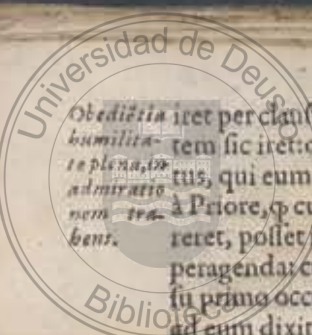 Universidad de Deusto
Biblioteca
Obediẽtia
humilita-
te plena, in
admiratio
nem tra-
hens.
iret per clauſ
tem ſic iret: o
tus, qui eum
à Priore, ꝙ cu
reret, poſſet
peragenda: c
ſu primo occ
ad eum divin